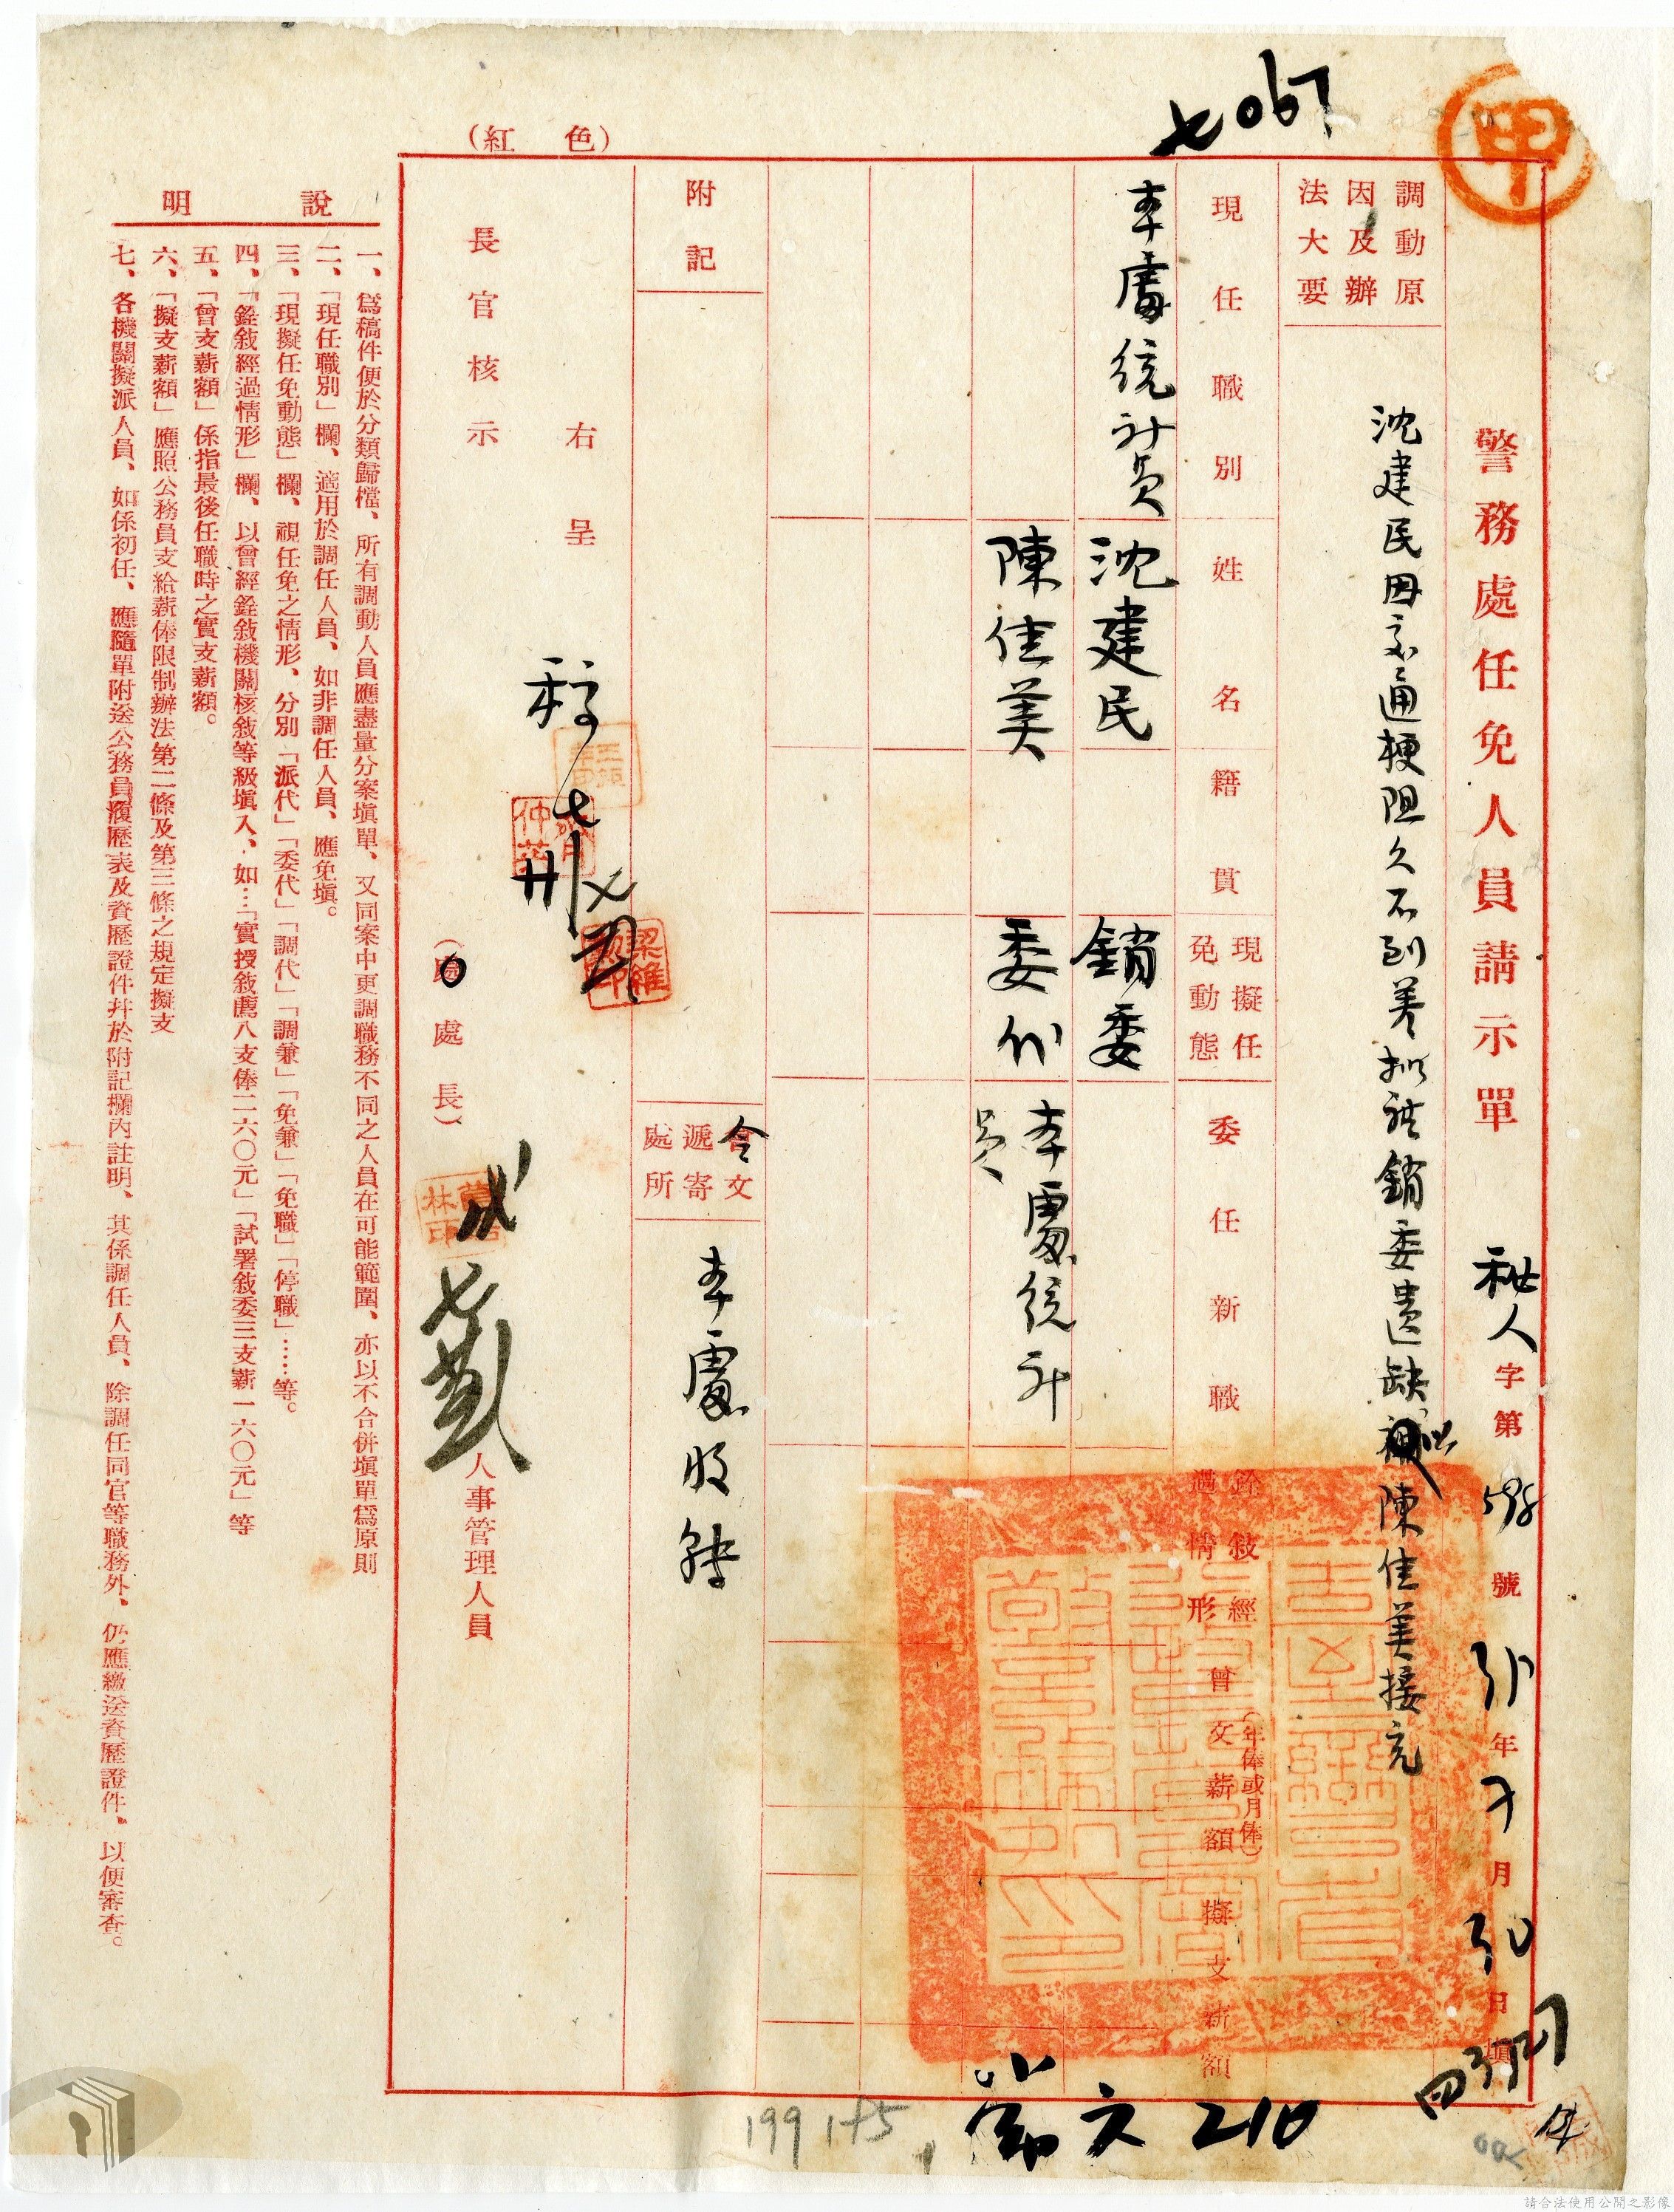 甲
七067
(紅 色)
警務處任免人員請示單
秘人字第 號 年7月30日填
調動原因及辦法大要
沈建民因交通梗阻久不到差擬請銷委遺缺擬以陳佳美接充
現任職別
姓名
籍貫
現擬任免動態
委任新職
銓敘經過情形
曾支薪額
(年俸或月俸)
擬支薪額
本處統計員
沈建民
銷委
陳佳美
委代
本處統計員
附記
令文遞寄處所
本處收轉
右呈
長官核示
(處處長)
人事管理人員
說明
一、爲稿件便於分類歸檔、所有調動人員應盡量分案塡單、又同案中更調職務不同之人員在可能範圍、亦以不合併塡單爲原則
二、「現任職別」欄、適用於調任人員、如非調任人員、應免塡。
三、「現擬任免動態」欄、視任免之情形、分別「派代」「委代」「調代」「調兼」「免兼」「免職」「停職」……等。
四、「銓敘經過情形」欄、以曾經銓敘機關核敘等級塡入、如…「實授敘薦八支俸二六〇元」「試署敘委三支薪一六〇元」等
五、「曾支薪額」係指最後任職時之實支薪額。
六、「擬支薪額」應照公務員支給薪俸限制辦法第二條及第三條之規定擬支
七、各機關擬派人員、如係初任、應隨單附送公務員履歷表及資歷證件幷於附記欄內註明、其係調任人員、除調任同官等職務外、仍應繳送資歷證件、以便審查。
210
199
請合法使用公開之影像